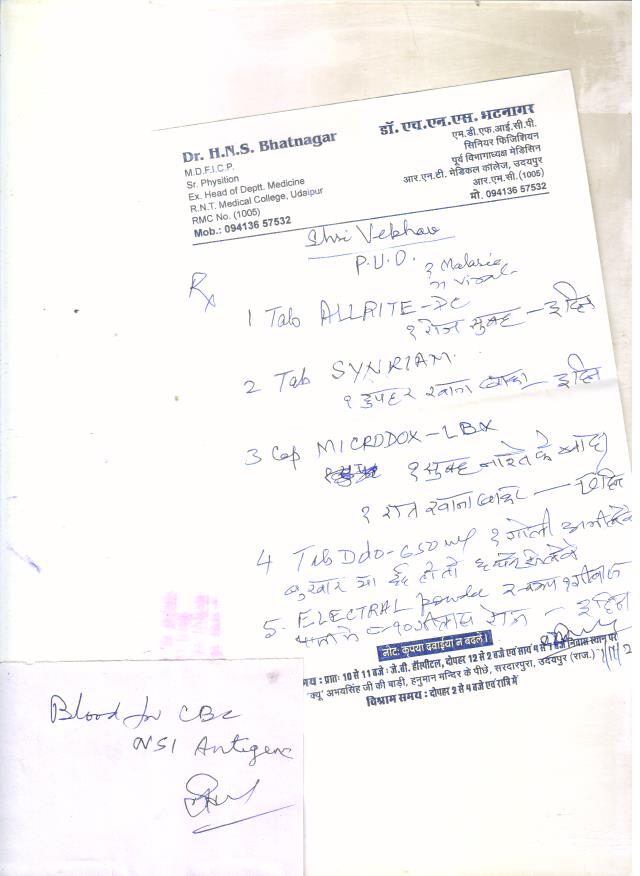 Dr. H.N.S. Bhatnagar
M.D.F.I.C.P.
Sr. Physition
Ex. Head of Deptt. Medicine
R.N.T. Medical College, Udaipur
RMC No. (1005)
Mob.: 094136 57532
डॉ. एच.एन.एस. भटनागर
एम.डी.एफ.आई.सी.पी.
सिनियर फिजिशियन
पूर्व विभागाध्यक्ष मेडिसिन
आर.एन.टी. मेडिकल कॉलेज, उदयपुर
आर.एम.सी.(1005)
मो. 094136 57532
Shri
P.U.O. ? Malaria
? Viral
Rx
1 Tab ALLRITE-DC
१ रोज सुबह — ३ दिन
2 Tab SYNRIAM
१ दुपहर खाना बाद — ३ दिन
3 Cap MICRODOX-LBX
१ सुबह नाश्ते के बाद
१ रात खाना बाद — दिन
4 Tab Ddo-650 mg १ गोली
बुखार या दर्द हो तो
5. ELECTRAL powder
रोज — ३ दिन
नोट: कृपया दवाईया न बदलें।
मय : प्रातः 10 से 11 बजे : जे.बी. हॉस्पीटल, दोपहर 12 से 2 बजे एवं सायं 4 से 7 बजे निवास स्थान पर
'क्यू' अभयसिंह जी की बाड़ी, हनुमान मन्दिर के पीछे, सरदारपुरा, उदयपुर (राज.)
विश्राम समय : दोपहर 2 से 4 बजे एवं रात्रि में
Blood for CBC
NSI Antigene